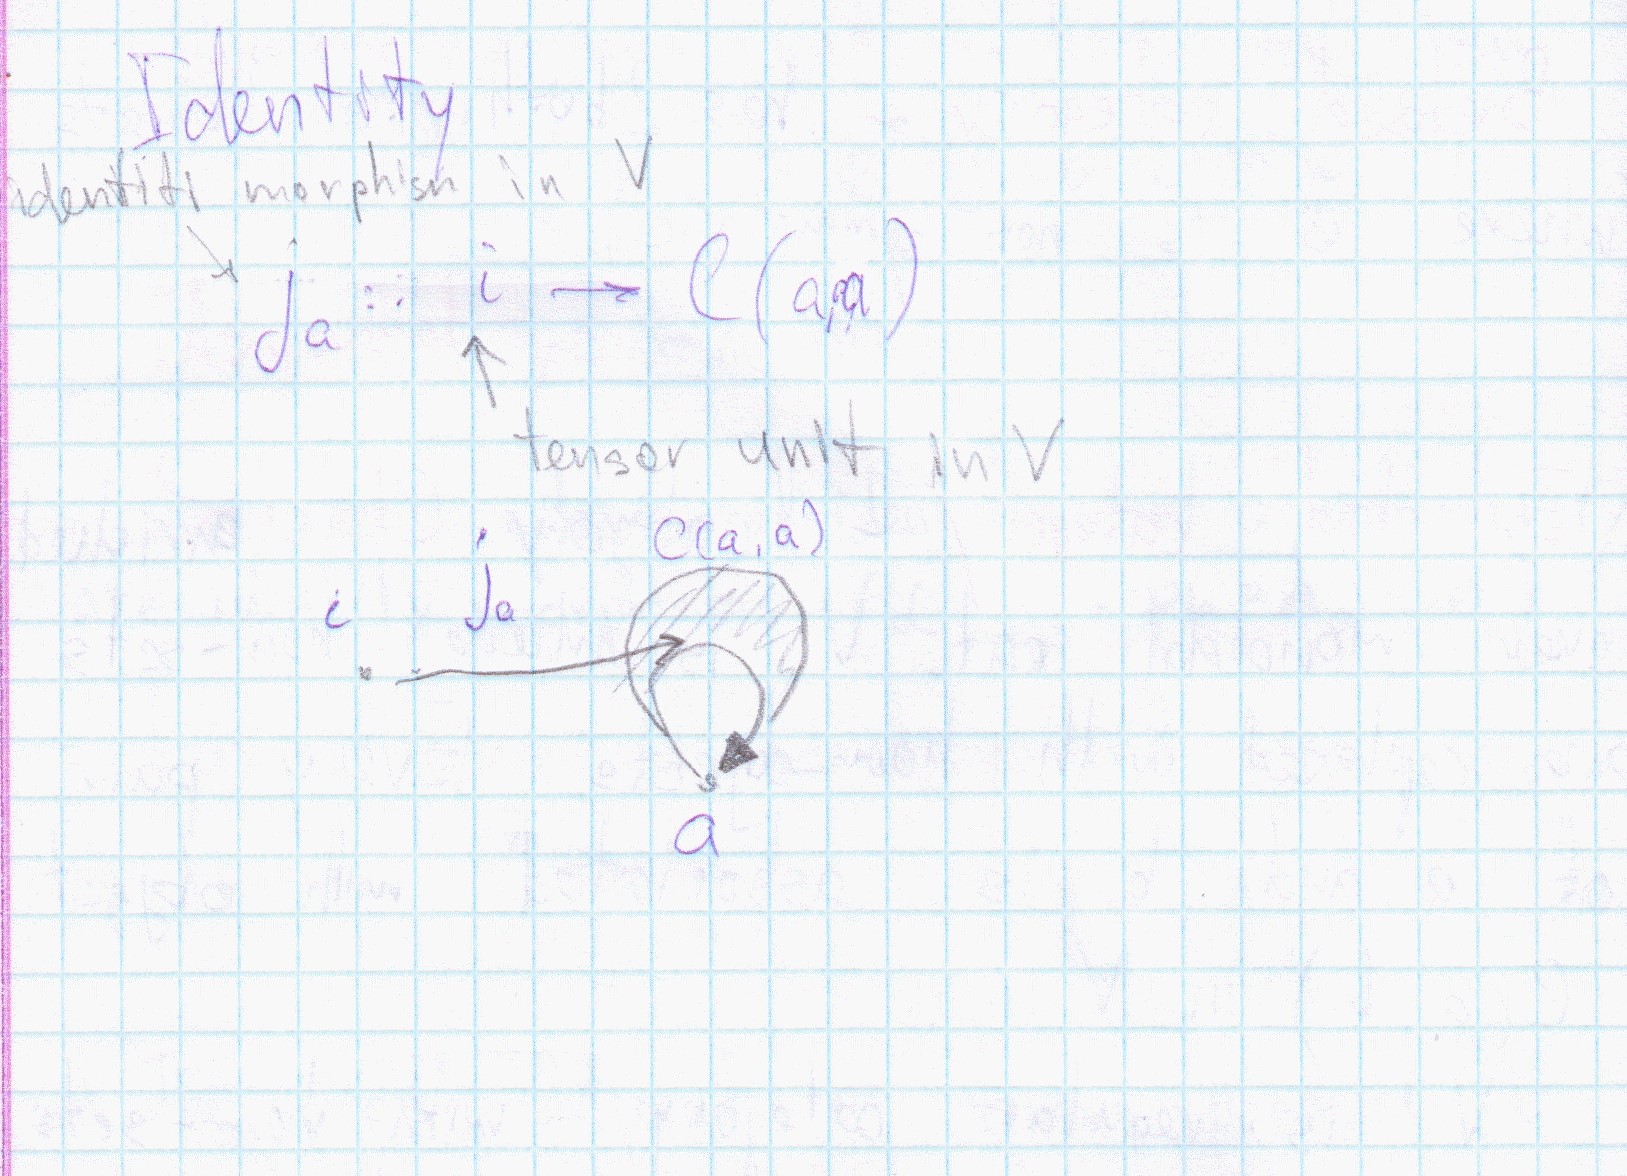 Identity
identiti morphism in V
ja :: i → C(a,a)
tensor unit in V
C(a,a)
i ja
a